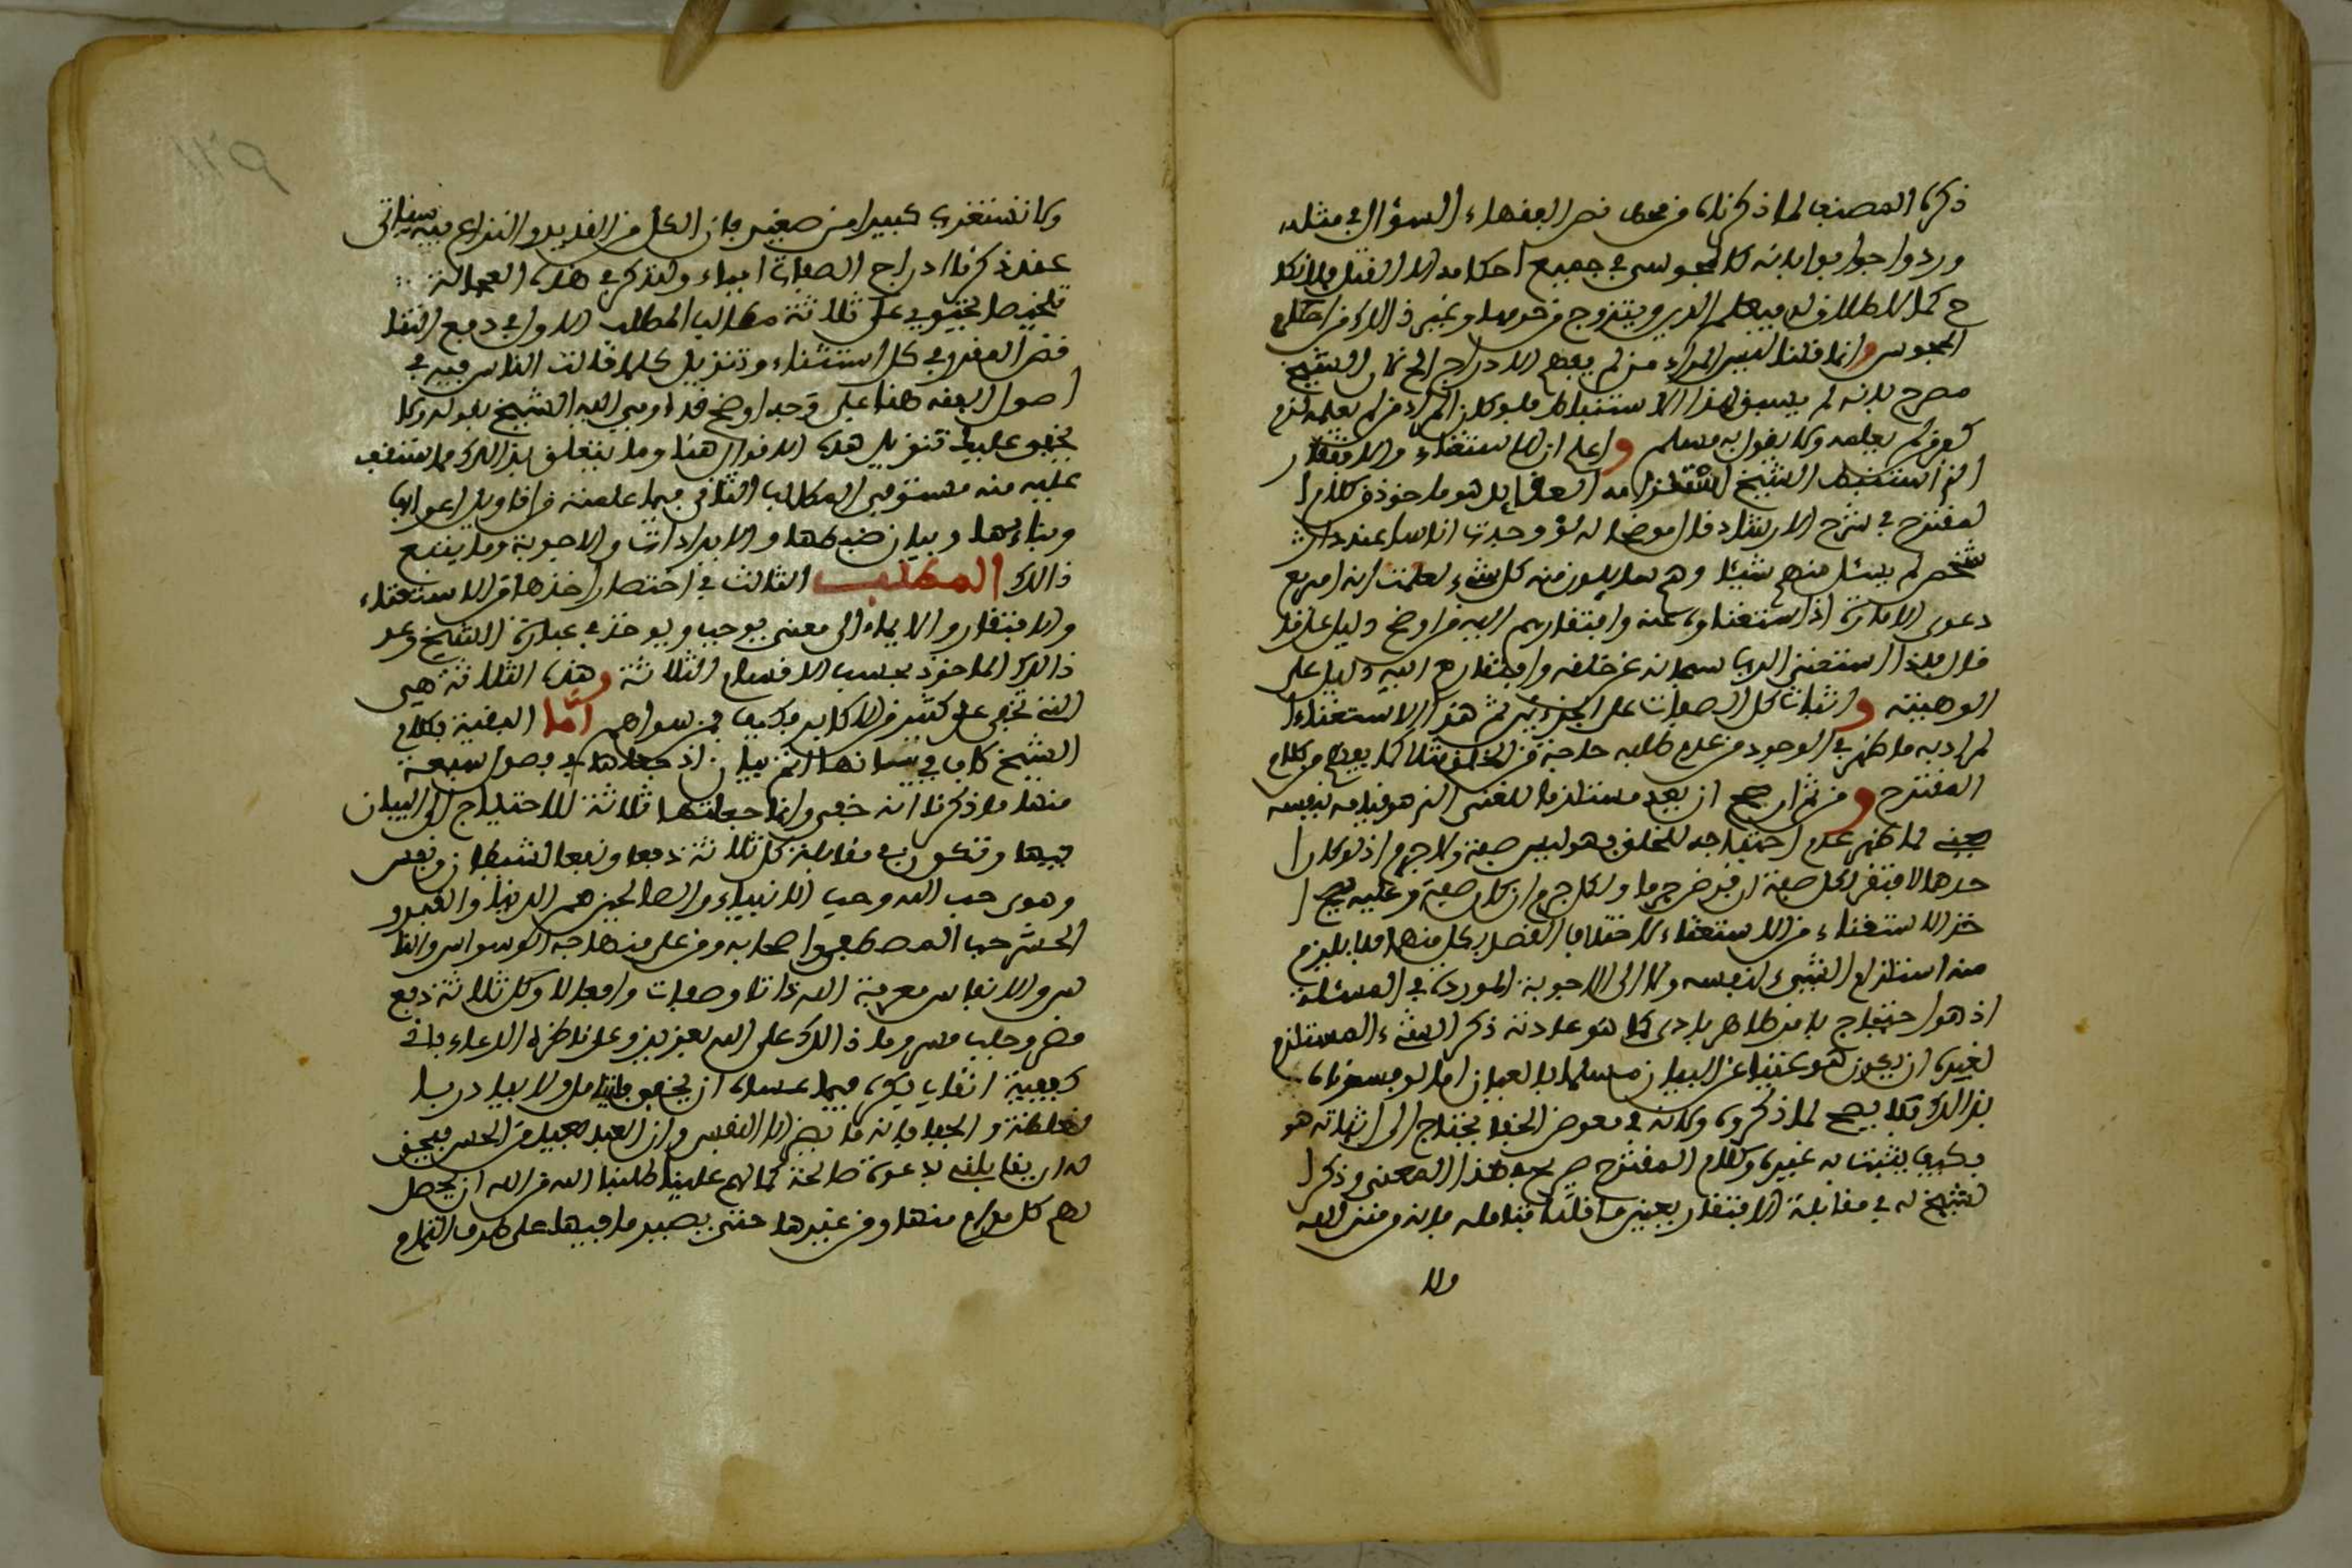 ذكره المصنف لما ذكرناه من نص الفقهاء السؤال في مثله
وردوا جوابه بانه كالمجوسي في جميع احكامه الا القتل فلا نكا
ح كما لا طلاق له فيعلم الدين ويتزوج من حرمها وغير ذالك من احكام
المجوس وانما قلنا ليس المراد من لم يعلم الادراج الخ لان الشيخ
مصرح بانه لم يسبق لهذا الاستنباط فلو كان المراد من لم يعلمه لزم
كفر من لم يعلمه ولا يقول به مسلم واعلم ان الاستغناء والافتقار
الذ استنبط الشيخ منه العقائد هو ماخوذ من كلام ا
لمقترح في شرح الارشاد قال موضحا له لو وجدت اناسا عند دار
شخص لم يسئل منهم شيئا وهم سايلون منه كل شيء لعلمت انه امر مع
دعوى الامارة اذ استغناؤه عنه وافتقارهم اليه من اوضح دليل على
قال فلذا استغنى الرب سبحانه عن خلقه وافتقارهم اليه دليل على
الوهيته واثبات كل الصفات على الجزءين ثم هذا الاستغناء ا
لمراد به ما ظهر في الوجود من عدم طلبه حاجة من الخلق مثلا كما يعلم من كلام
المقترح ومن ثم ان صح ان يعد مستلزما للغنى الذ هو قيامه بنفسه
لما ظهر عدم احتياجه للخلق فهو ليس صفة ولا جرم اذ لو كان ا
حدهما لافتقر لكل صفة ان فرض جرما ولكل جرم ان كان صفة وعليه صح ا
خذ الاستغناء من الاستغناء لاختلاف القصد بكل منهما فلا يلزم
منه استلزام الشيء لنفسه ولا الى الاجوبة الموردة في المسئلة
اذ هو احتياج بامر ظاهر بادي كما هو عادته ذكر الشيء المستلزم
لغيره ان يكون هو غنيا عن البيان مسلما بالعيان اما لو فسرناه
بذالك فلا يصح لما ذكروه ولانه في معرض الخفا يحتاج الى اثباته هو
فكيف يثبت به غيره وكلام المقترح صريح في هذا المعنى وذكر ا
لشيخ له في مقابلة الافتقار يعين ما قلنا فتامله فانه من منن الله
ولا
ولا تستغرب كبيرا من صغير فان الكل من القدير والنزاع فيه سياتي
عند ذكرنا ادراج الصفات ولنذكر في هذه العجالة
تلخيصا يحتوي على ثلاثة مطالب المطلب الاول في دفع التنا
قض المقرر في كل استثناء وتنزيل كلما قالت الناس فيه في
اصول الفقه هنا على وجه اوضح قد اومى اليه الشيخ بقوله ولا
يخفى عليك تنزيل هذه الاقوال هنا وما يتعلق بذالك مما ستقف
عليه منه مستوفى المطلب الثاني فيما علمته من اقاويل اعرابها
وبنائها وبيان ضبطها والايرادات والاجوبة وما يتبع
ذالك المطلب الثالث في اختصار اخذها من الاستغناء
والافتقار والايماء الى معنى يوجب ويوخذ في عبارة الشيخ وعد
ذالك الماخوذ بحسب الاقسام الثلاثة وهذه الثلاثة هي
التي تخفى على كثير من الاكابر فكيف بمن سواهم اما البقية فكلام
الشيخ كاف في بيانها اتم بيان اذ جعلها في فصول سبعة
منها ما ذكرنا انه خفي وانما جعلتها ثلاثة للاحتياج الى البيان
فيها وتكون في مقابلة كل ثلاثة دفعا ونفعا الشيطان ونفس
وهوى حب الله وحب الانبياء والصالحين هم الدنيا والقبر و
الحشر حب المصطفى واصحابه ومن على منهاجه الوسواس والخنا
س والانفاس معرفة الله ذاتا وصفات وافعالا وكل ثلاثة دفع
مضر وجلب مسر وما ذالك على الله بعزيز وعلى ناظره الدعاء باي
كيفية اتفاب فكره فيما عساه ان يخفى فلا يبادر با
لغلطة والجفا فانه ما يضر الا النفس وان
له ان يقابلنه بدعوة صالحة كما لهم علينا طلبنا الله من الله ان يحصل
لهم كل مرام منها ومن غيرها حتى يصير ما فيها على طرف الثمام